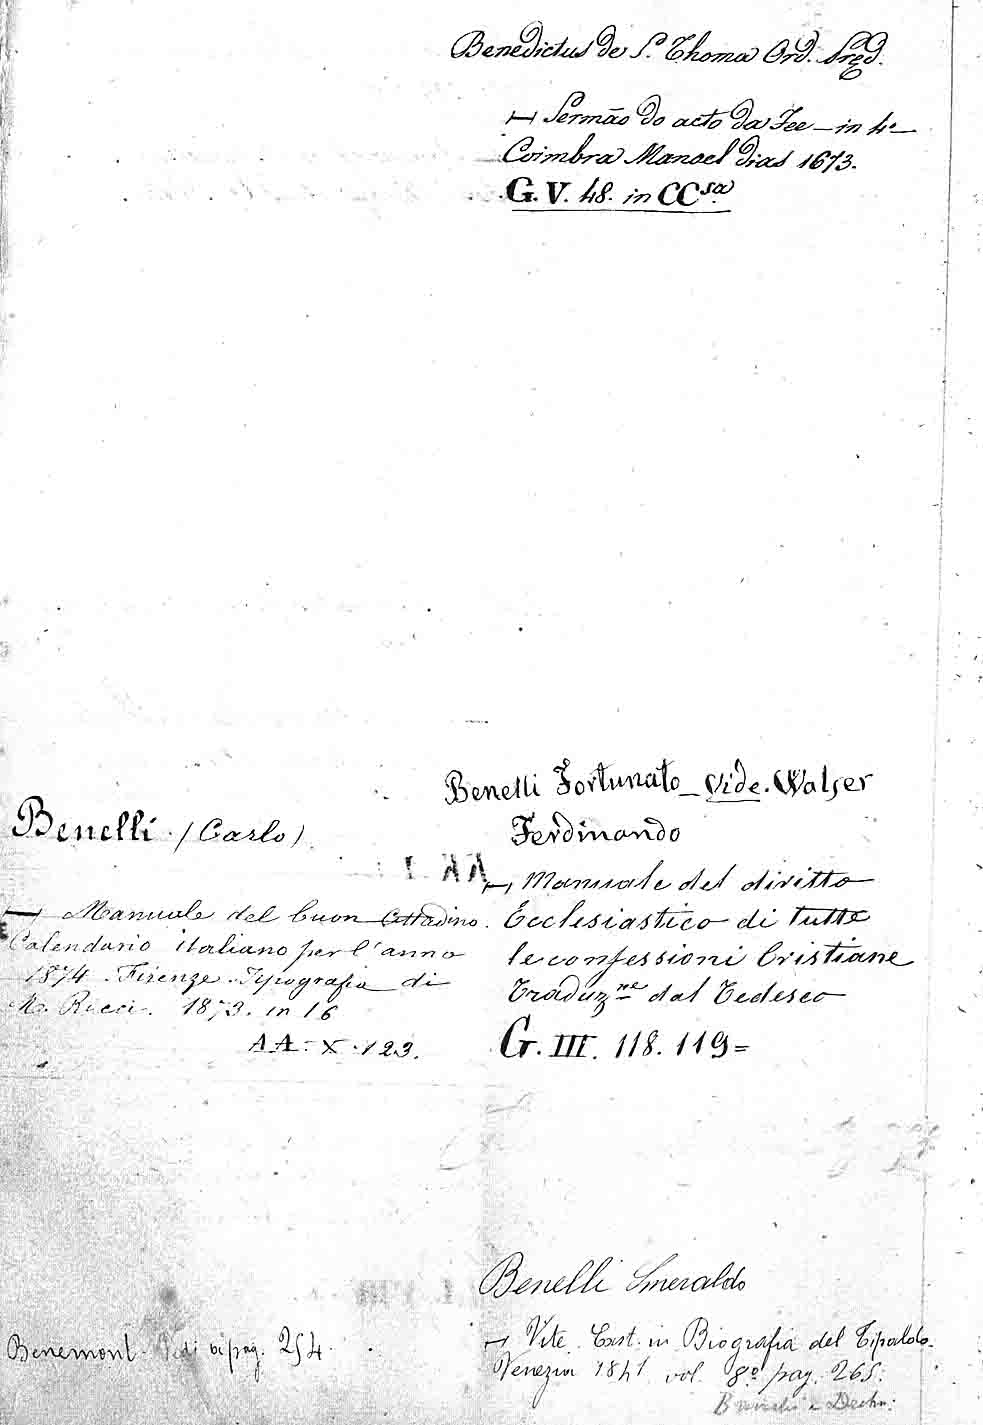 Benedictus de S. Thoma Ord. Pręd.
— Sermão do acto da Fee — in 4.º
Coimbra Manoel Dias 1673.
G. V. 48. in CC.sa
Benelli (Carlo)
— Manuale del buon Cittadino.
Calendario italiano per l'anno
1874. Firenze. Tipografia di
M. Ricci. 1873. in 16
AA. X. 123.
Benelli Fortunato — Vide. Walser
Ferdinando
— Manuale del diritto
Ecclesiastico di tutte
le confessioni Cristiane
Traduz.ne dal Tedesco
G. III. 118. 119=
Benelli Smeraldo
— Vite. Est. in Biografia del Tipaldo.
Venezia 1841 vol. 8º pag. 265:
Benemont. Vedi pag. 254.